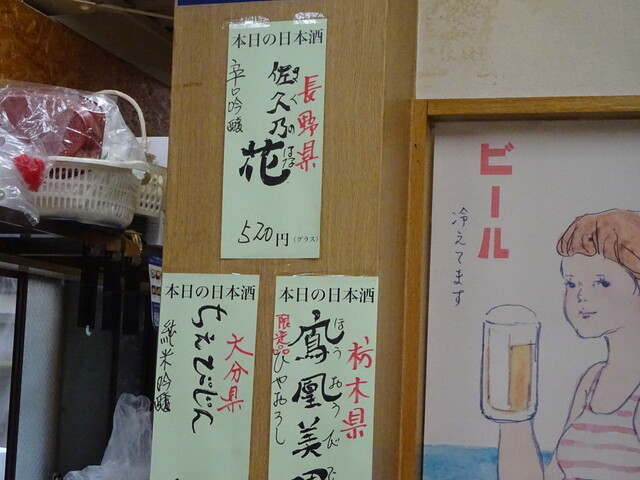 本日の日本酒
長野県
佐久乃花
さくのはな
辛口吟醸
520円(グラス)
本日の日本酒
大分県
ちえびじん
純米吟醸
本日の日本酒
栃木県
鳳凰美田
ほうおうびでん
限定品
ひやおろし
ビール
冷えてます